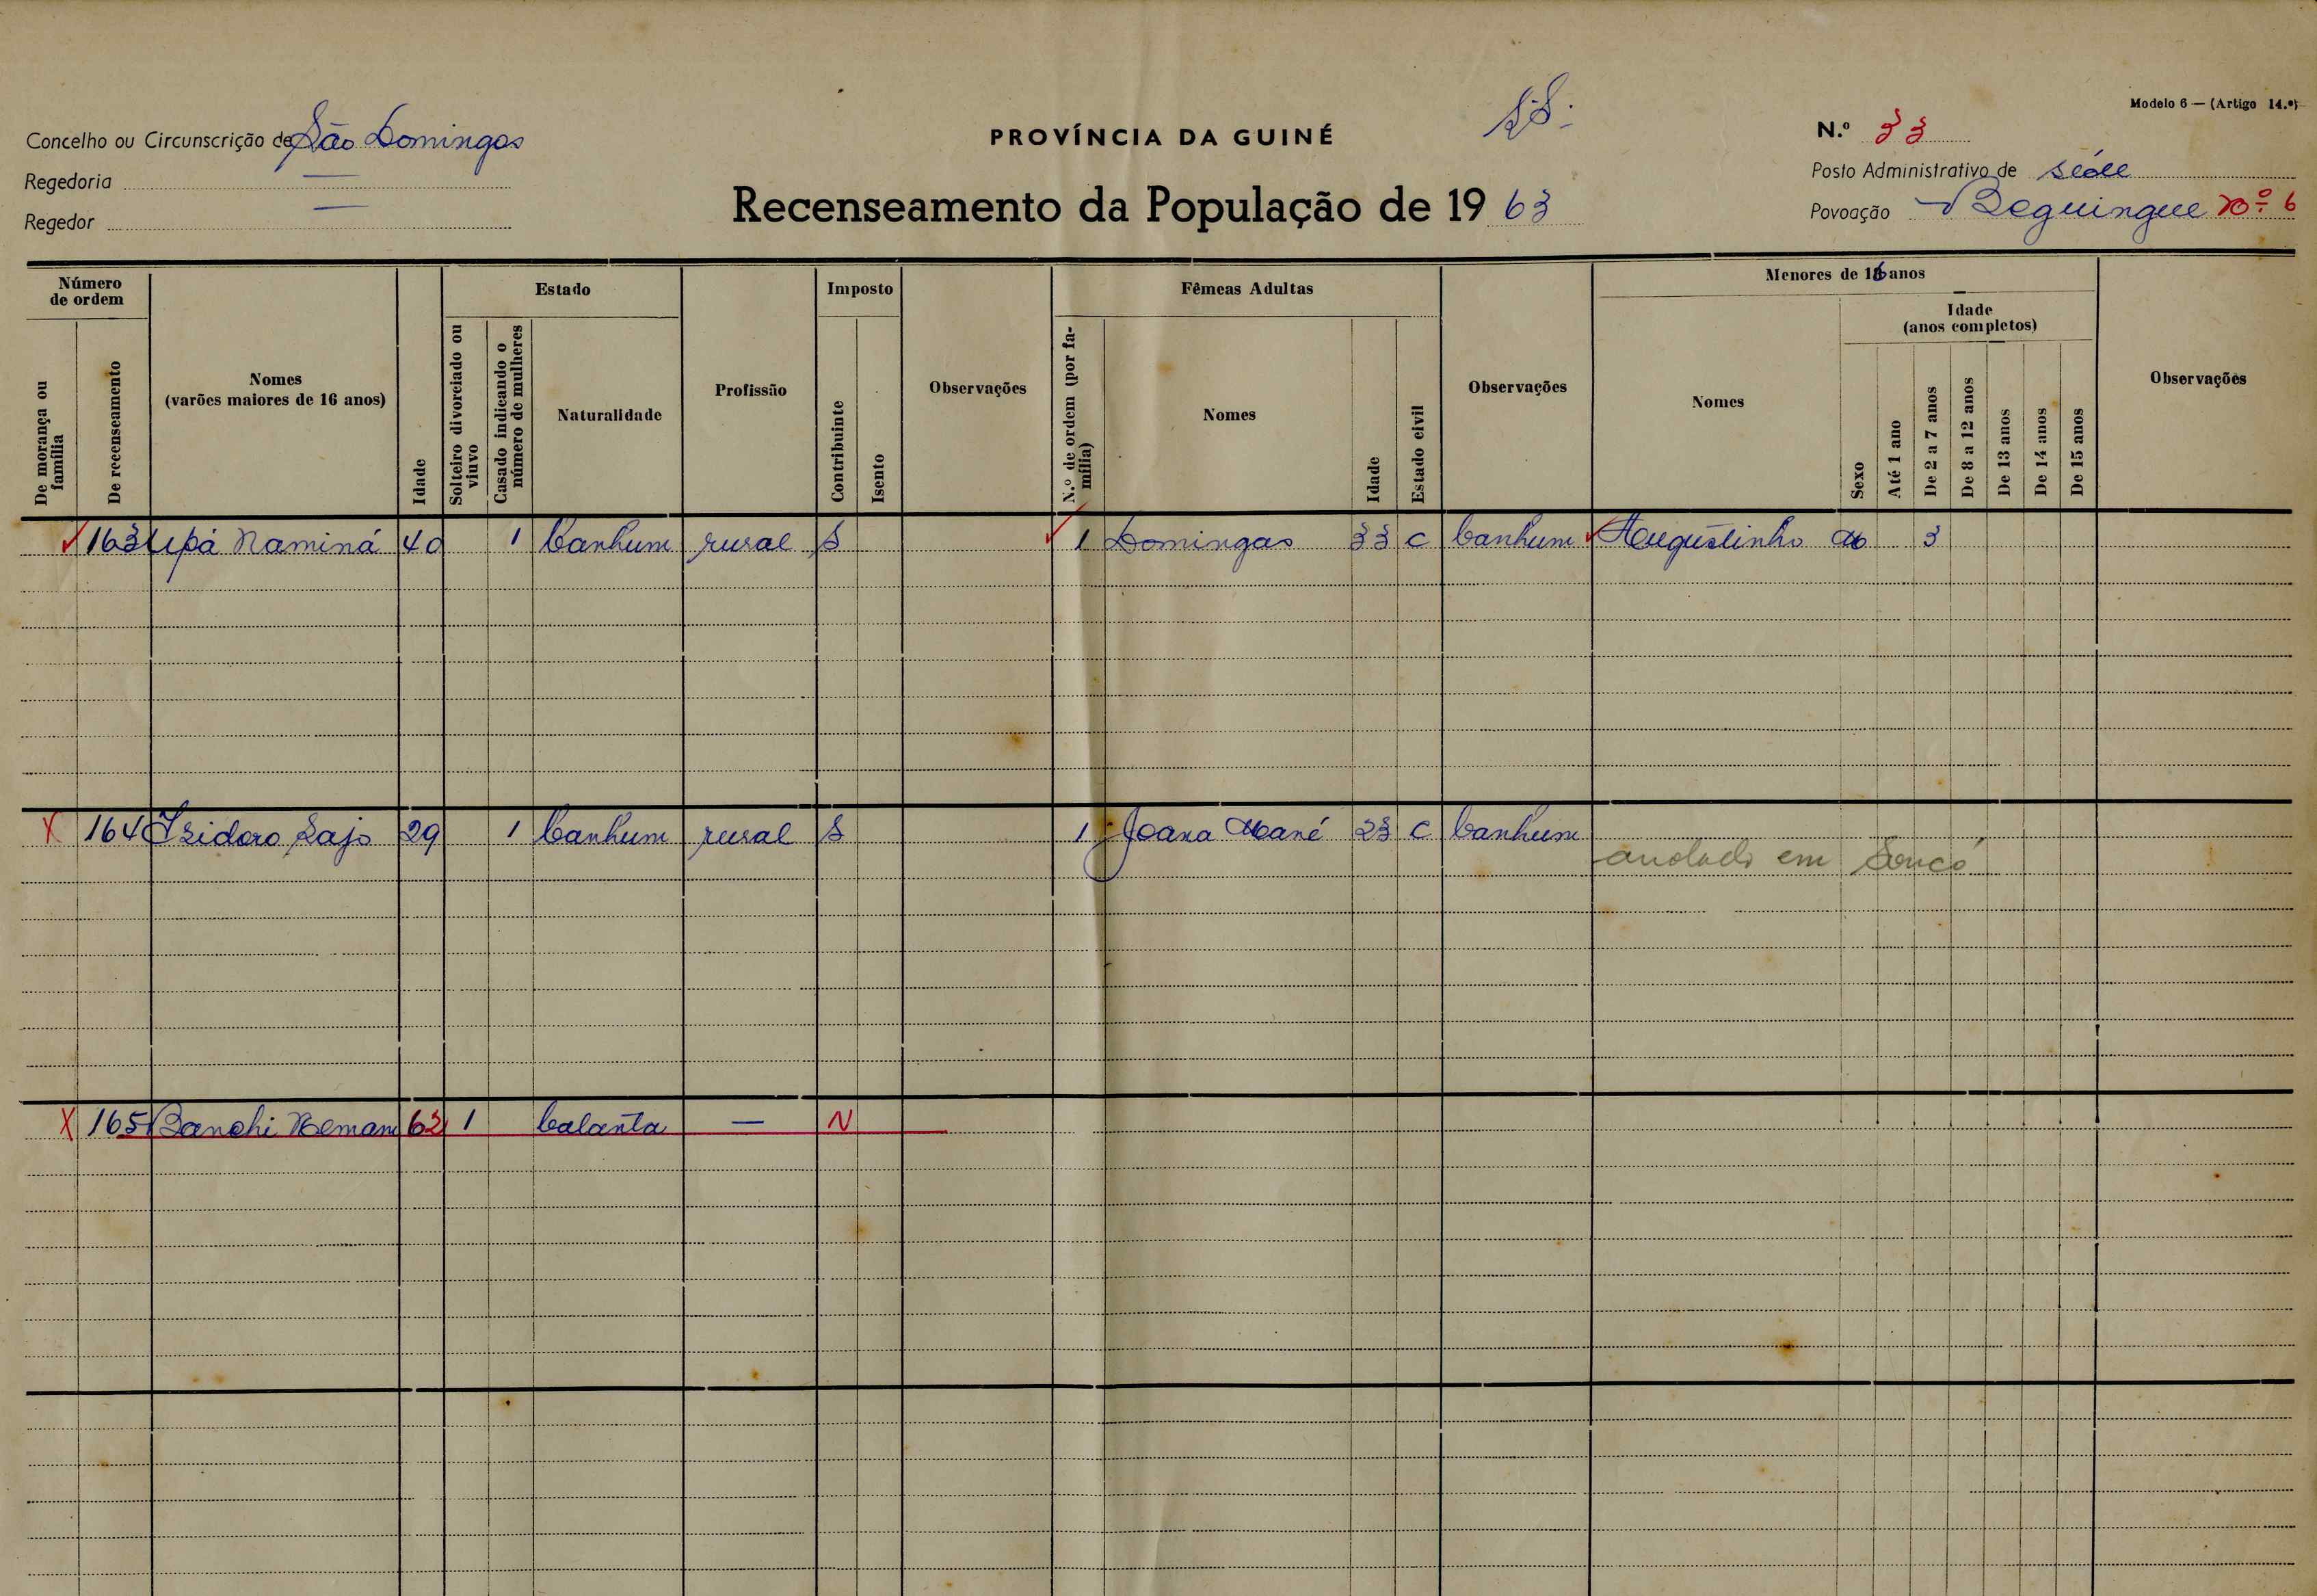 Modelo 6 — (Artigo 14.º)
Concelho ou Circunscrição de São Domingos
PROVÍNCIA DA GUINÉ
N.º 33
Regedoria —
Posto Administrativo de Séde
Regedor —
Recenseamento da População de 1963
Povoação Beguingue Nº 6
Número de ordem
De morança ou família
De recenseamento
Nomes
(varões maiores de 16 anos)
Idade
Estado
Solteiro divorciado ou viuvo
Casado indicando o número de mulheres
Naturalidade
Profissão
Imposto
Contribuinte
Isento
Observações
Fêmeas Adultas
N.º de ordem (por família)
Nomes
Idade
Estado civil
Observações
Menores de 16 anos
Nomes
Idade
(anos completos)
Sexo
Até 1 ano
De 2 a 7 anos
De 8 a 12 anos
De 13 anos
De 14 anos
De 15 anos
Observações
163 Upá Naminá 40 1 banhum rural S 1 Domingas 33 c banhum Augustinho M 3
164 Izidoro Sajo 29 1 banhum rural S 1 Joana Mané 23 c banhum
em
165 62 1 balanta — N